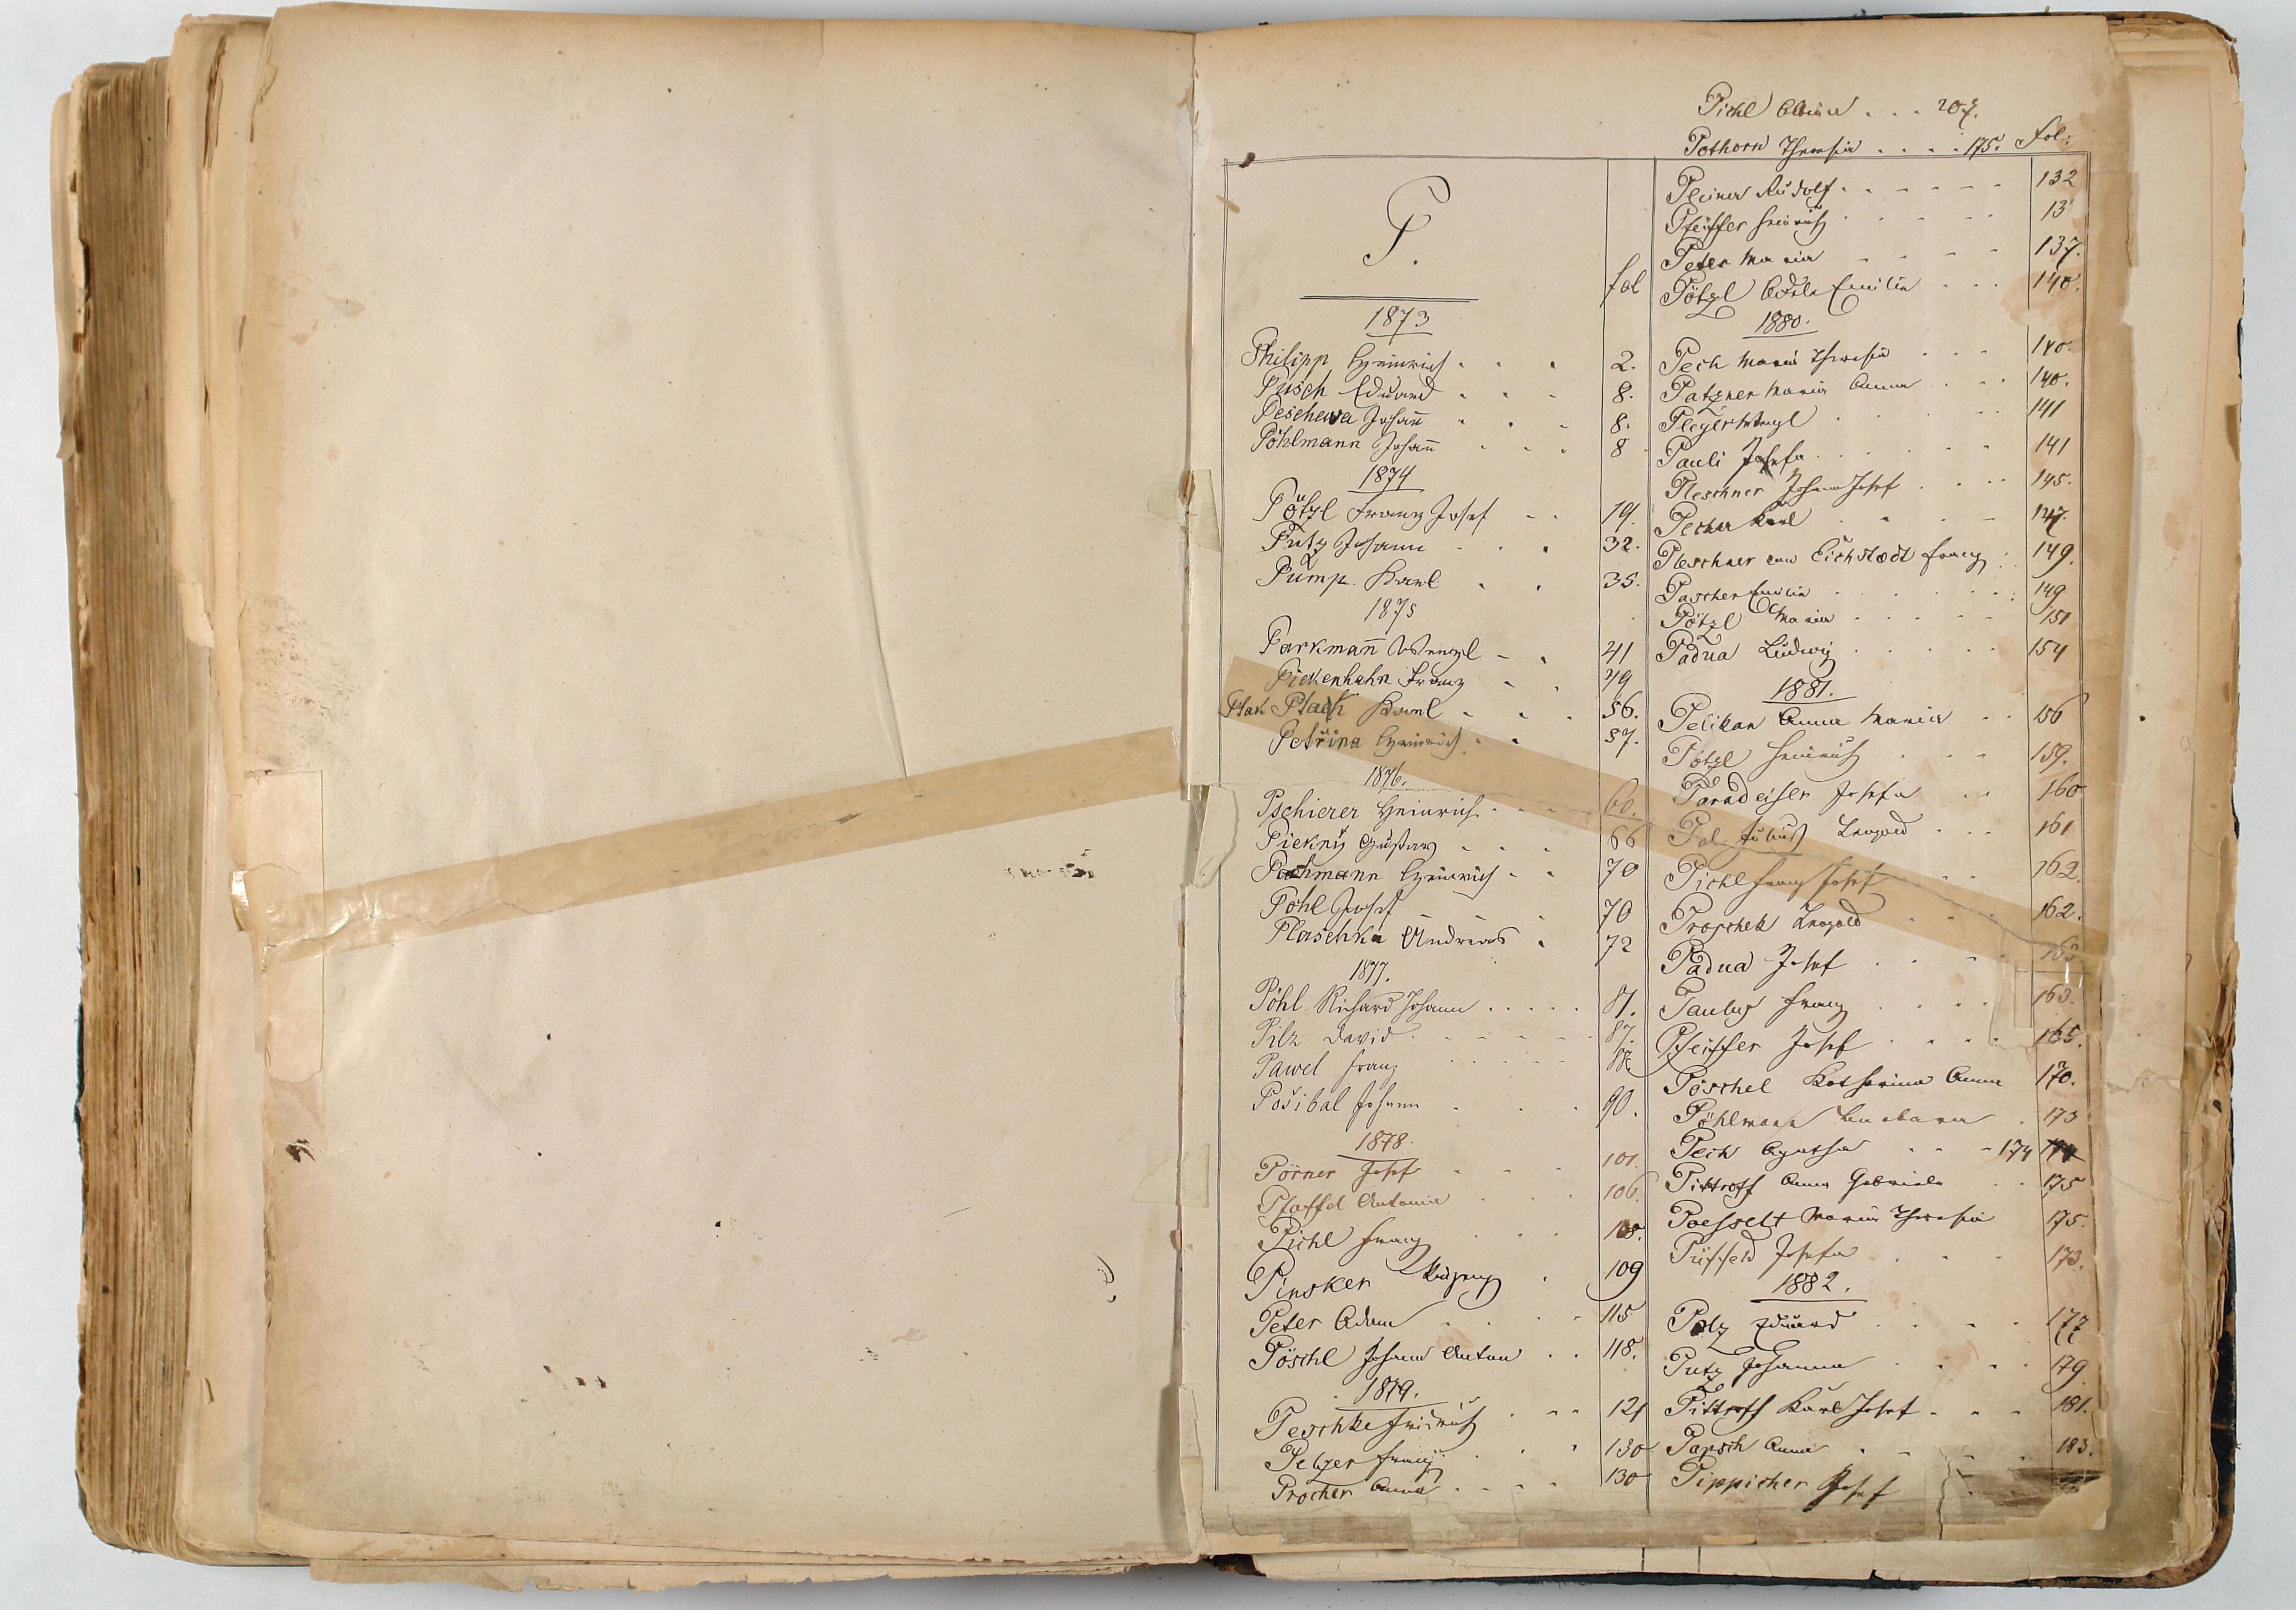 Pichl 207.
Pothorn Theresia . . . . 175. Fol:
P.
fol
1873
Philipp Heinrich . . . 2.
Pusch Eduard . . . 8.
Peschewa Johann̄ . . . 8.
Pöhlmann Johann̄ . . . 8
1874
Pötzl Franz Josef . . 19.
Putz Johann . . . 32.
Pump. Karl . . 35.
1875
Parkman̄ Wenzl . . 41
Pickenhahn Franz . . 49
Plak Plack Karl . . . 56.
Petřina Heinrich . . 57.
1876.
Pschierer Heinrich . . . 60.
Piekný Gustav . . . 66
Pachmann Heinrich . . 70
Pöhl Josef 70
Plaschka Andreas . 72
1877.
Pöhl Richard Johann . . . . . 81.
Pilz David . . . . . . 87.
Pawel Franz . . . . . 88.
Pošibal Johann . . . 90.
1878.
Pörner Josef . . . . 101.
Pfaffel Antonia . . . 106.
Pichl Franz . . . 108.
Pinsker . 109
Peter Adam . . . . 115
Pöschl Johann Anton . . 118.
1879.
Peschke Friedrich . . . 121
Pelzer Franz . . . 130
Procher Anna . . . . 130
Pleiner Rudolf . . . . . . 132
Pfeiffer Heinrich . . . . . 13
Peter Maria . . . . 137.
Pötzl Adele Emilie . . . 140.
1880.
Pech Maria Theresia . . . 140.
Patzner Maria Anna . . . 140.
Pleyer Wenzl . . . . . 141
Pauli Josefa . . . . . . 141
Pleschner Johann Josef . . . . 145.
Pecher Karl . . . . 147.
Pleschner von Eichstaedt Franz . 149.
Pascher Emilie . . . . . . . 149
Pötzl Maria . . . . . 151
Padua Ludwig . . . . . 154
1881.
Pelikan Anna Maria . . 156
Pötzl Heinrich . . . 159.
Paradeiser Josefa . . 160
Polz Julius Leopold . . . 161
Pichl Franz Josef . . 162.
Proschek Leopold . . . 162.
Padua Josef . . . . 163
Paulus Franz . . . . 163.
Pfeiffer Josef . . . . 165.
Pöschel Katharina Anna 170.
Pöhlmann Barbara . 173
Pech Agatha . . . 174
Pittroff Anna Gabriele . . 175
Poesselt Maria Theresia 175.
Josefa . . . 173.
1882.
Polz Eduard . . . . 177
Putz Johanna . . . . 179
Pittroff Karl Josef . . . 181.
Papsch Anna . . . . 183.
Pippicher Josef